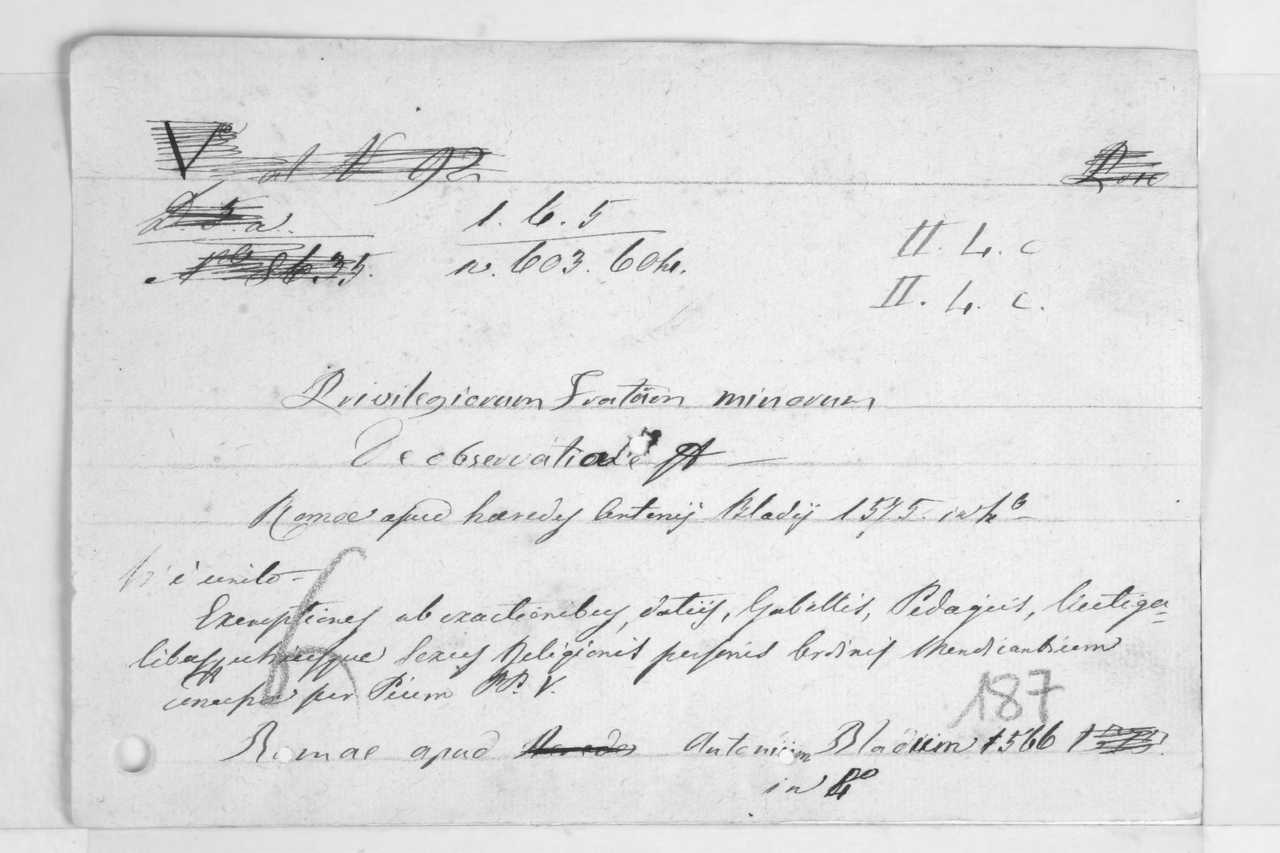 V
N 92
1. 6. 5
II. 4. c
n. 603. 604.
II. 4. c.
Privilegiorum Fratrum minorum
De observatia
Romae apud haredes Antonij Bladij 1575. in 4º
V'è unito
Exemptiones ab exactionibus, datiis, Gabellis, Pedagiis, Vectiga=
libus, utriusque Sexus Religionis personis Ordinis Mendicantium
concessae per Pium PP. V.
187
Romae apud Antonium Bladium 1566
in 4º